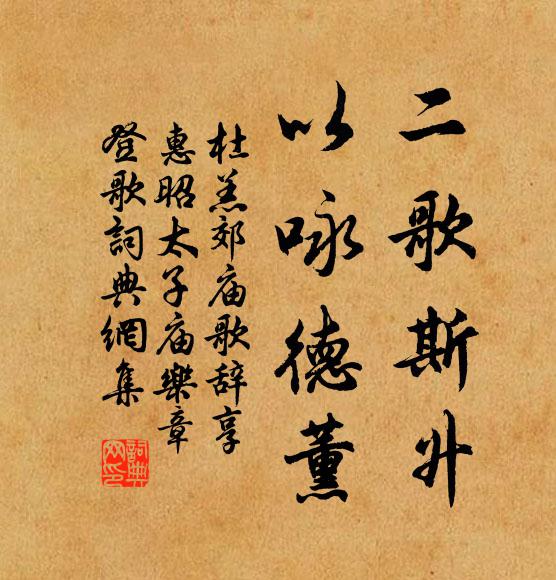 二歌斯升
以咏德薰
杜羔郊庙歌辞享
惠昭太子庙樂章
登歌詞典網集
詞典網印